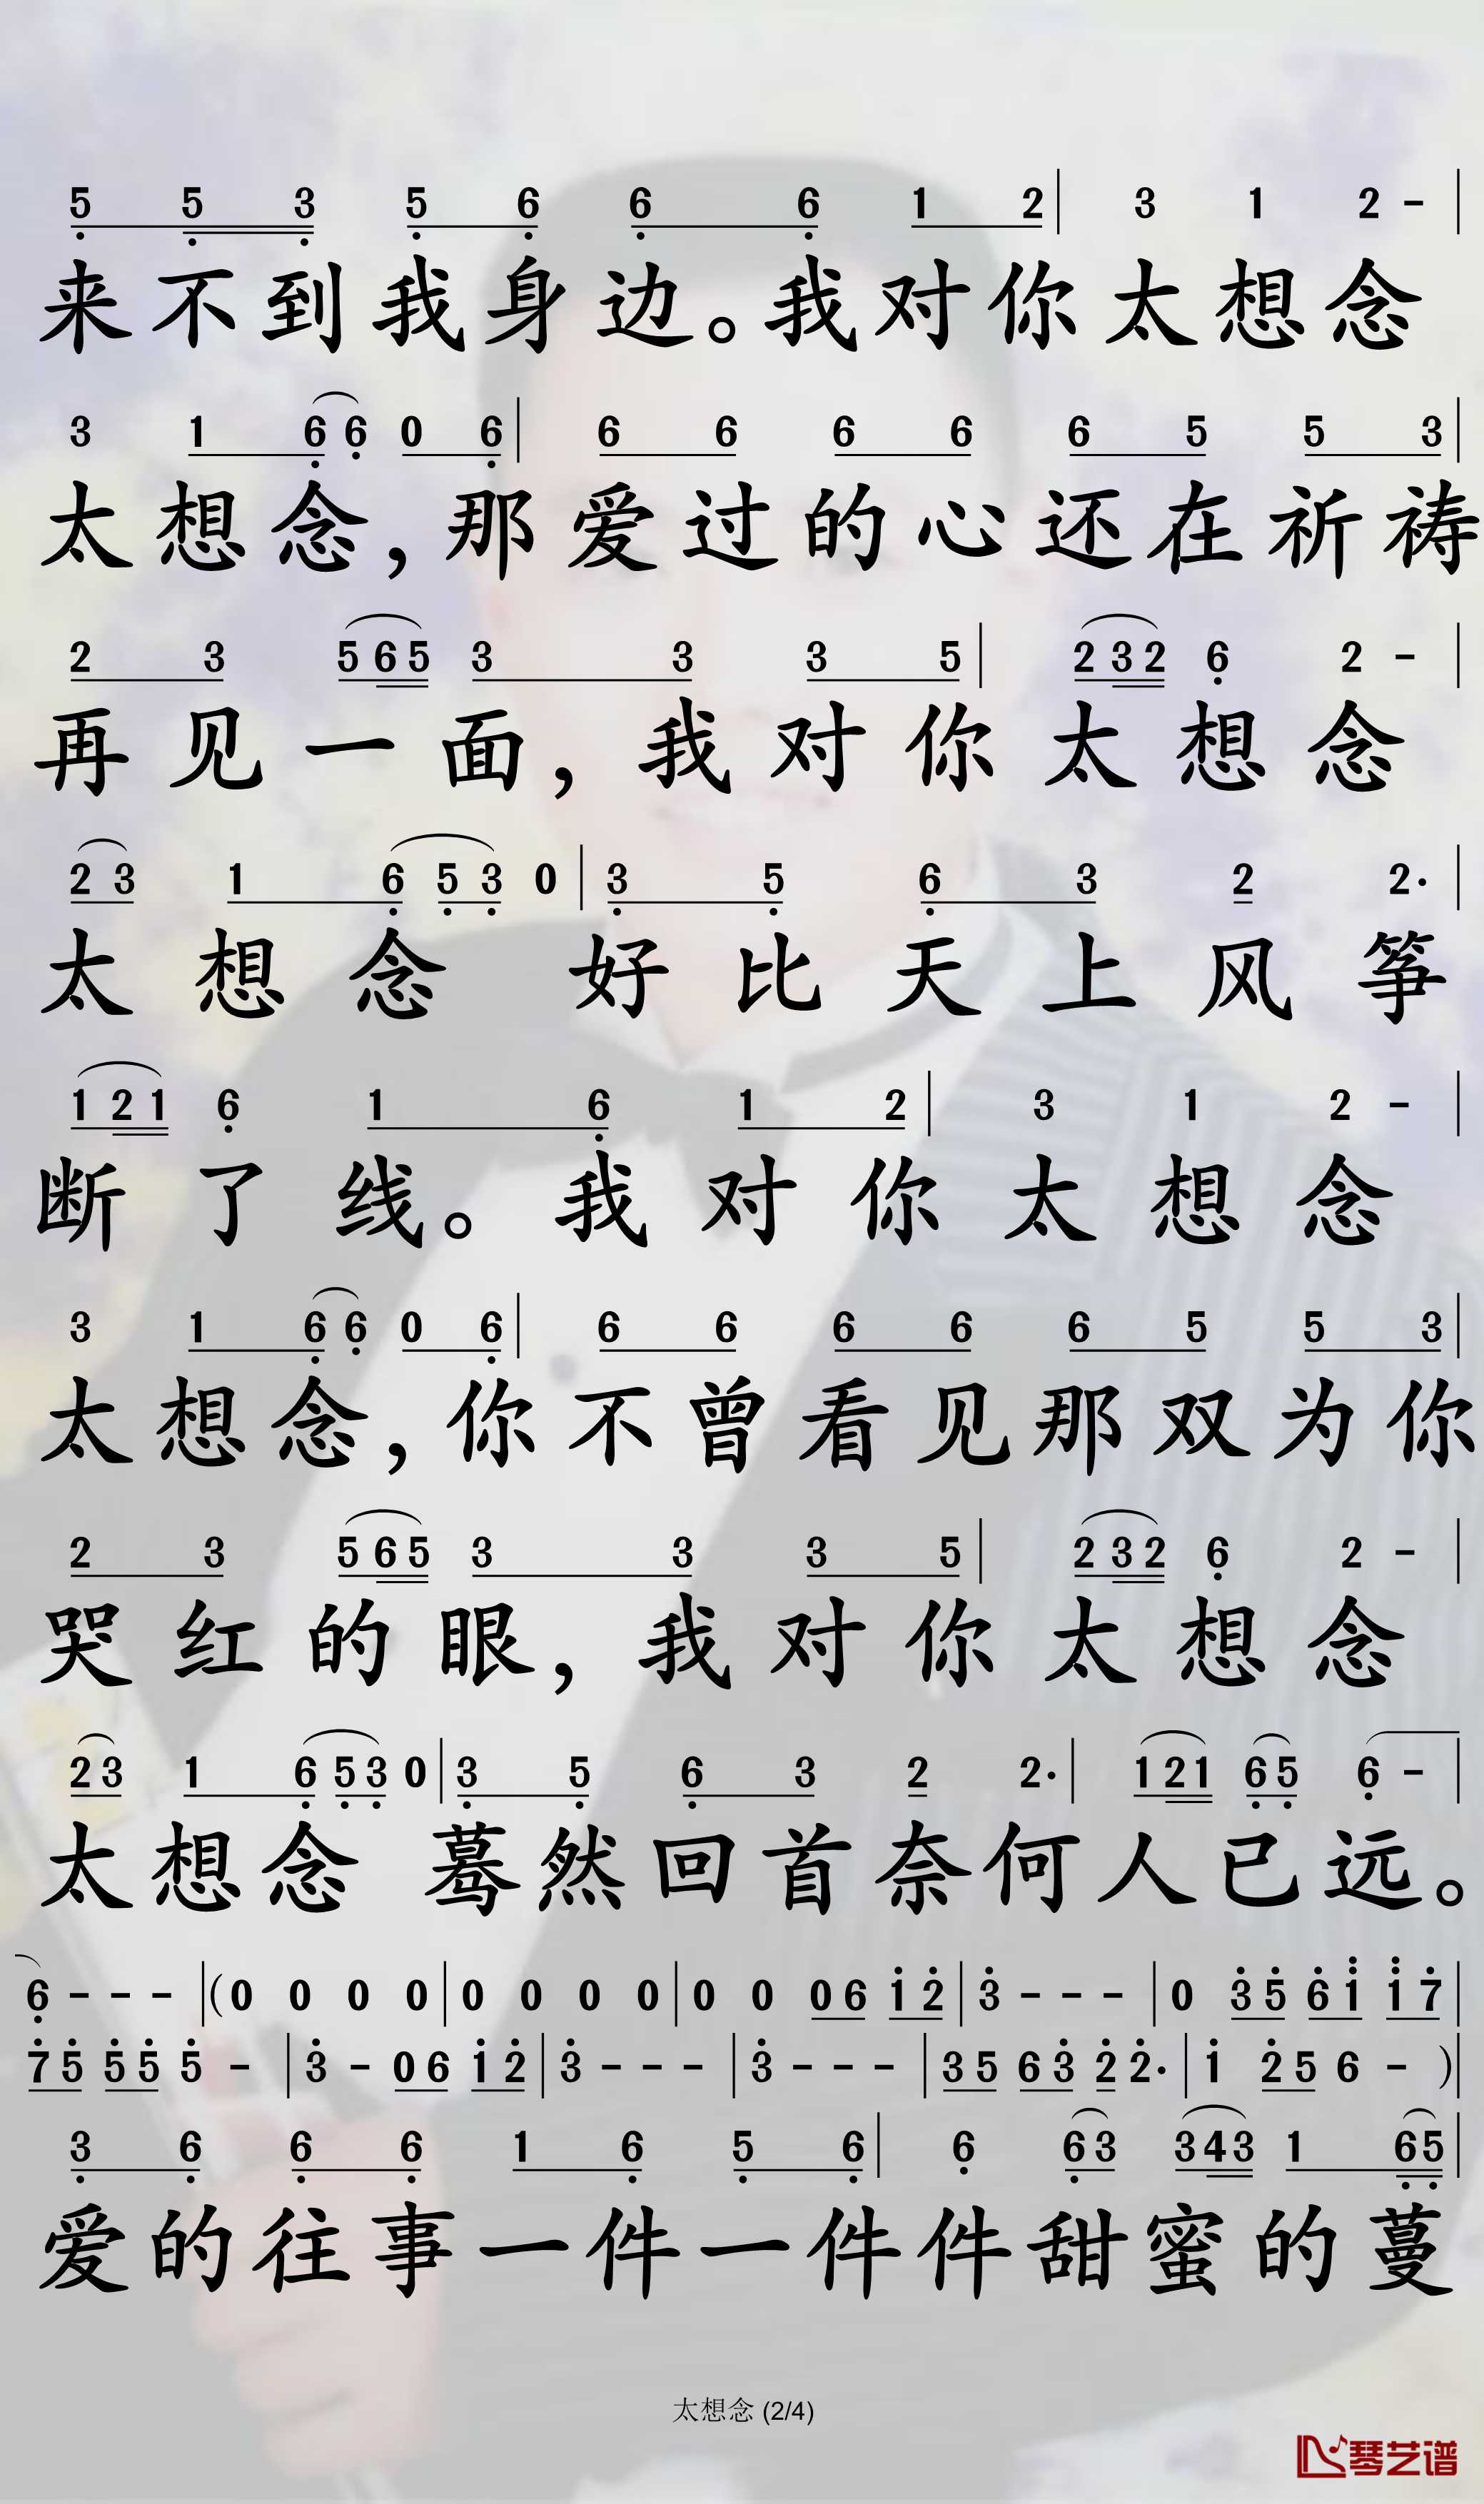 5 5 3 5 6 6 6 1 2 | 3 1 2 - |
来不到我身边。我对你太想念
3 1 6 6 0 6 | 6 6 6 6 6 5 5 3 |
太想念,那爱过的心还在祈祷
2 3 5 6 5 3 3 3 5 | 2 3 2 6 2 - |
再见一面,我对你太想念
2 3 1 6 5 3 0 | 3 5 6 3 2 2· |
太想念 好比天上风筝
1 2 1 6 1 6 1 2 | 3 1 2 - |
断了线。我对你太想念
3 1 6 6 0 6 | 6 6 6 6 6 5 5 3 |
太想念,你不曾看见那双为你
2 3 5 6 5 3 3 3 5 | 2 3 2 6 2 - |
哭红的眼,我对你太想念
2 3 1 6 5 3 0 | 3 5 6 3 2 2· | 1 2 1 6 5 6 - |
太想念 蓦然回首奈何人已远。
6 - - - | (0 0 0 0 | 0 0 0 0 | 0 0 0 6 1 2 | 3 - - - | 0 3 5 6 1 1 7 |
7 5 5 5 5 - | 3 - 0 6 1 2 | 3 - - - | 3 - - - | 3 5 6 3 2 2· | 1 2 5 6 - ) |
3 6 6 6 1 6 5 6 | 6 6 3 3 4 3 1 6 5 |
爱的往事一件一件件甜蜜的蔓
太想念 (2/4)
琴艺谱